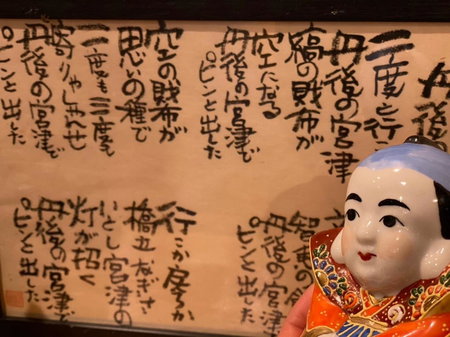 丹後
二度と行こ
丹後の宮津
縞の財布が
空になる
丹後の宮津で
ピンと出した
空の財布が
思いの種で
二度も三度も
寄りゃしゃせ
丹後の宮津で
ピンと出した
智恵の文
丹後の宮津
ピンと出した
行こか戻ろか
橋立なぎさ
いとし宮津の
灯が招く
丹後の宮津で
ピンと出した